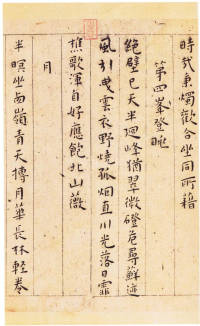 時後東燭歡合坐同所藉
第四峯登眺
絕壁已天半迴峰猶翠微磴危尋蘚迹
風引曳雲衣野燒孤烟直川光落日霏
樵歌渾自好應飽北山薇
月
半暝坐西嶺青天摶月華長林輕卷